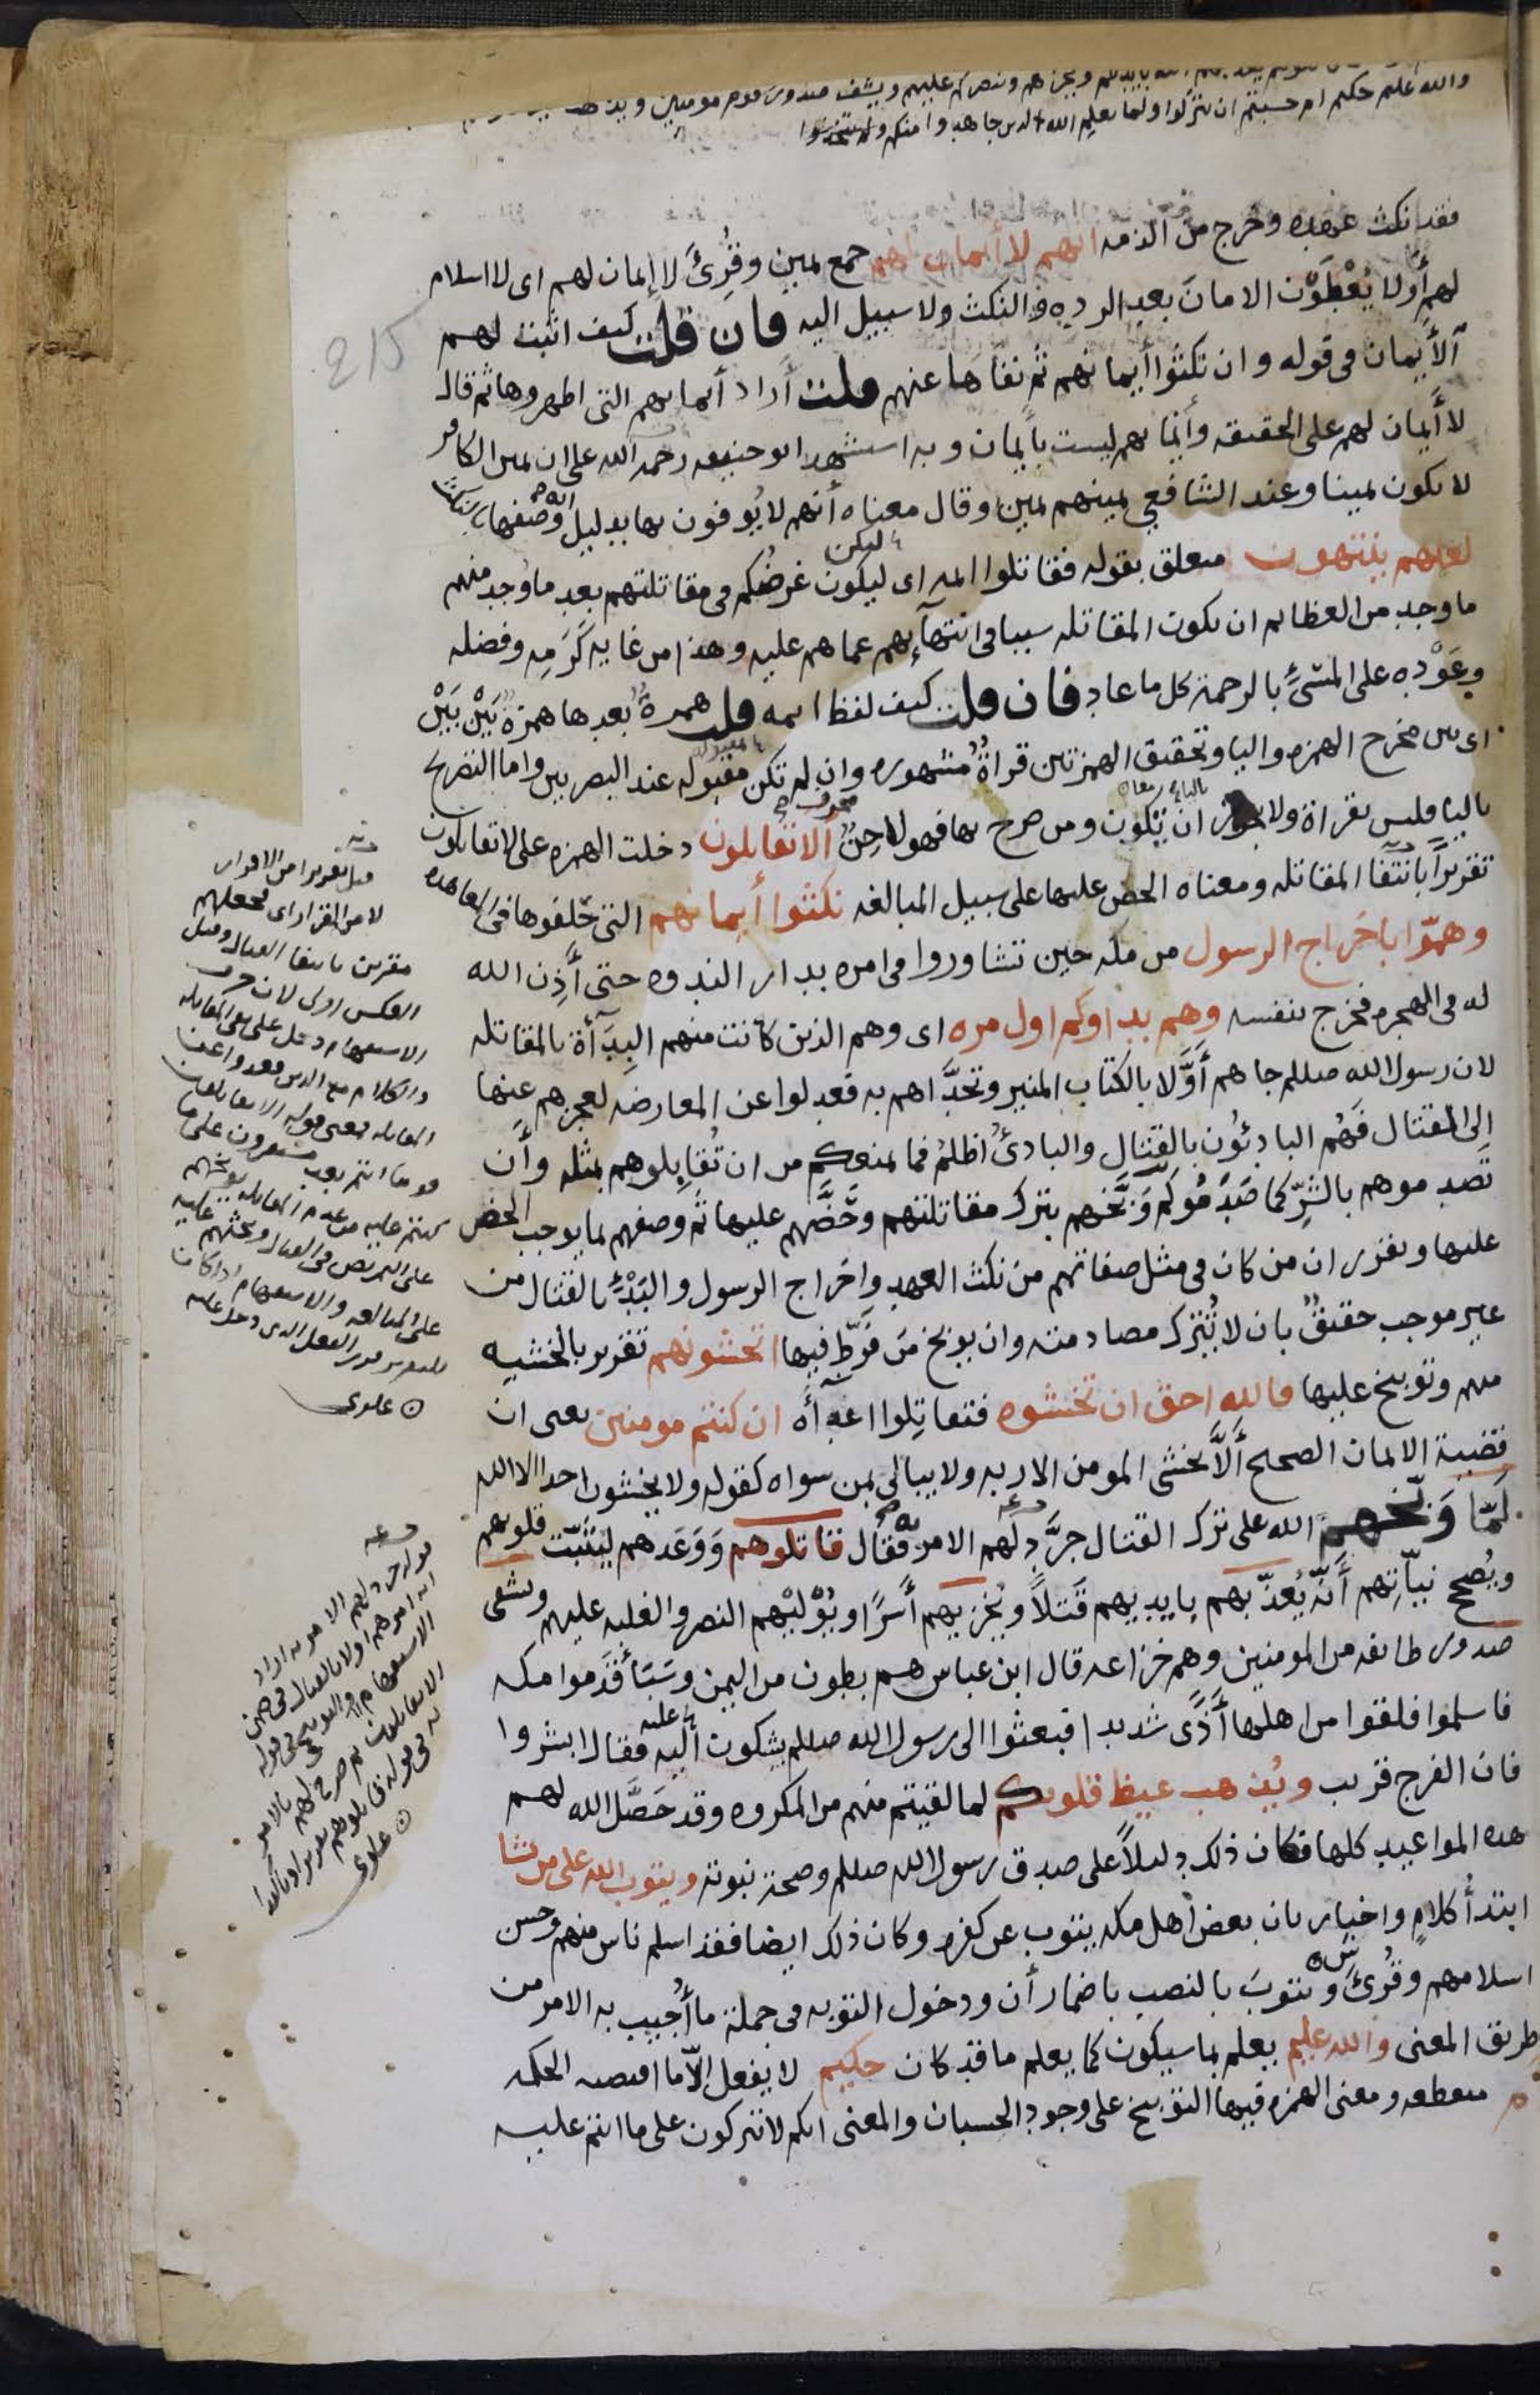 والله عليم حكيم ام حسبتم ان تتركوا ولما يعلم الله الذين جاهدوا منكم ولم يتخذوا
فقد نكث عهده وخرج من الذمه انهم لا أيمان لهم جمع يمين وقُرِئَ لا إيمان لهم اى لا اسلام
لهم أولا يُعْطَوْن الامانَ بعد الرده والنكث ولا سبيل اليه فان قلت كيف اثبت لهم
الأَيمان فى قوله وان نكثوا أيمانهم ثم نفاها عنهم قلت أراد أيمانهم التى اظهروها ثم قال
لا أَيمان لهم على الحقيقه وأيمانهم ليست بأيمان وبه استشهد ابو حنيفه رحمه الله على ان يمين الكافر
لا يكون يمينا وعند الشافعي يمينهم يمين وقال معناه أنهم لا يُوفون بها بدليل انه وصفها بالنكث
لعلهم ينتهون متعلق بقوله فقاتلوا ائمه اى ليكون غرضُكم فى مقاتلتهم بعد ما وُجد منهم
ما وجد من العظائم ان تكون المقاتله سببا فى انتهآئهم عما هم عليه وهذا من غايه كَرَمِه وفضله
وعَوْدِه على المسئ بالرحمة كل ما عاد فان قلت كيف لفظ ائمه قلت همزةٌ بعدها همزةٌ بَيْن بَيْن
اى بين مخرج الهمزه واليا وتحقيق الهمزتين قراةٌ مشهوره وان لم تكن مقبوله عند البصريين واما التصريح
باليا فليس بقراة ولا يجوز ان تكون ومن صرح بها فهو لاحِنٌ ألا تقاتلون دخلت الهمزه على لا تقاتلون
تقريرًا بانتفا المقاتله ومعناه الحض عليها على سبيل المبالغه نكثوا أيمانهم التى حلفوها فى المعاهده
وهمّوا باخراج الرسول من مكه حين تشاوروا فى امره بدار الندوه حتى أَذِن الله
له فى الهجره فخرج بنفسه وهم بداوكم اول مره اى وهم الذين كانت منهم البِدَآأة بالمقاتله
لان رسول الله صللم جاهم أَوَّلا بالكتاب المنير وتحدَّاهم به فعدلوا عن المعارضه لعجزهم عنها
إلى القتال فَهُم البادِئُون بالقتال والبادئُ اظلم فما يمنعكم من ان تُقَاتِلوهم بمثله وأن
تَصدموهم بالشرّ كما صَدَمُوكم وَبَّخهم بترك مقاتلتهم وحَضَّهم عليها ثم وصفهم بما يوجب الحض
عليها ويقرر ان من كان فى مثل صفاتهم من نكث العهد واخراج الرسول والبَدْءِ بالقتال من
غير موجب حقيقٌ بان لا تُترك مصادمته وان يوبخ مَن فَرَّط فيها اتخشونهم تقرير بالخشيه
منهم وتوبيخ عليها فالله احق ان تخشوه فتقاتِلوا اعدآأه ان كنتم مومنين يعنى ان
قضية الايمان الصحيح أَلَّا يخشى المومن الا ربه ولا يبالى بمن سواه كقوله ولا يخشون احدا الا الله
لَمّا وَبّخهم الله على ترك القتال جرَّد لهم الامر به فقال قاتلوهم وَوَعَدهم ليُثَبّت قلوبهم
ويُصحح نيّاتِهم أَنّه يُعذّبهم بايديهم قَتلاً ويُخزيهم أَسرًا ويُوَلّيْهم النصر والغلبه عليهم ويشفى
صدور طائفه من المومنين وهم خزاعه قال ابن عباس هم بطون من اليمن وسَبَأ قَدِموا مكه
فاسلموا فلقوا من اهلها أَذًى شديدا فبعثوا الى رسول الله صللم يشكون اليه فقال ابشروا
فان الفرج قريب ويُذهب غيظ قلوبكم لما لقيتم منهم من المكروه وقد حَصَّل الله لهم
هذه المواعيد كلها فكان ذلك دليلاً على صدق رسول الله صللم وصحة نبوته ويتوب الله على من يشا
ابتدأُ كلام واخبار بان بعض أهل مكه يتوب عن كفره وكان ذلك ايضا فقد اسلم ناس منهم وحسن
اسلامهم وقُرئ ويتوبَ بالنصب باضمار أن ودخول التوبه فى جملة ما أُجيب به الامر من
طريق المعنى والله عليم يعلم ما سيكون كما يعلم ما قد كان حكيم لا يفعل إلّا ما اقتضته الحكمه
ام منقطعه ومعنى الهمزه فيها التوبيخ على وجود الحسبان والمعنى انكم لا تتركون على ما انتم عليه
قيل تقريرا من الاقرار
لا من القرار اى يجعلهم
مقرين بانتفا القتال وقيل
العكس اولى لان حرف
علوى
علوى
215